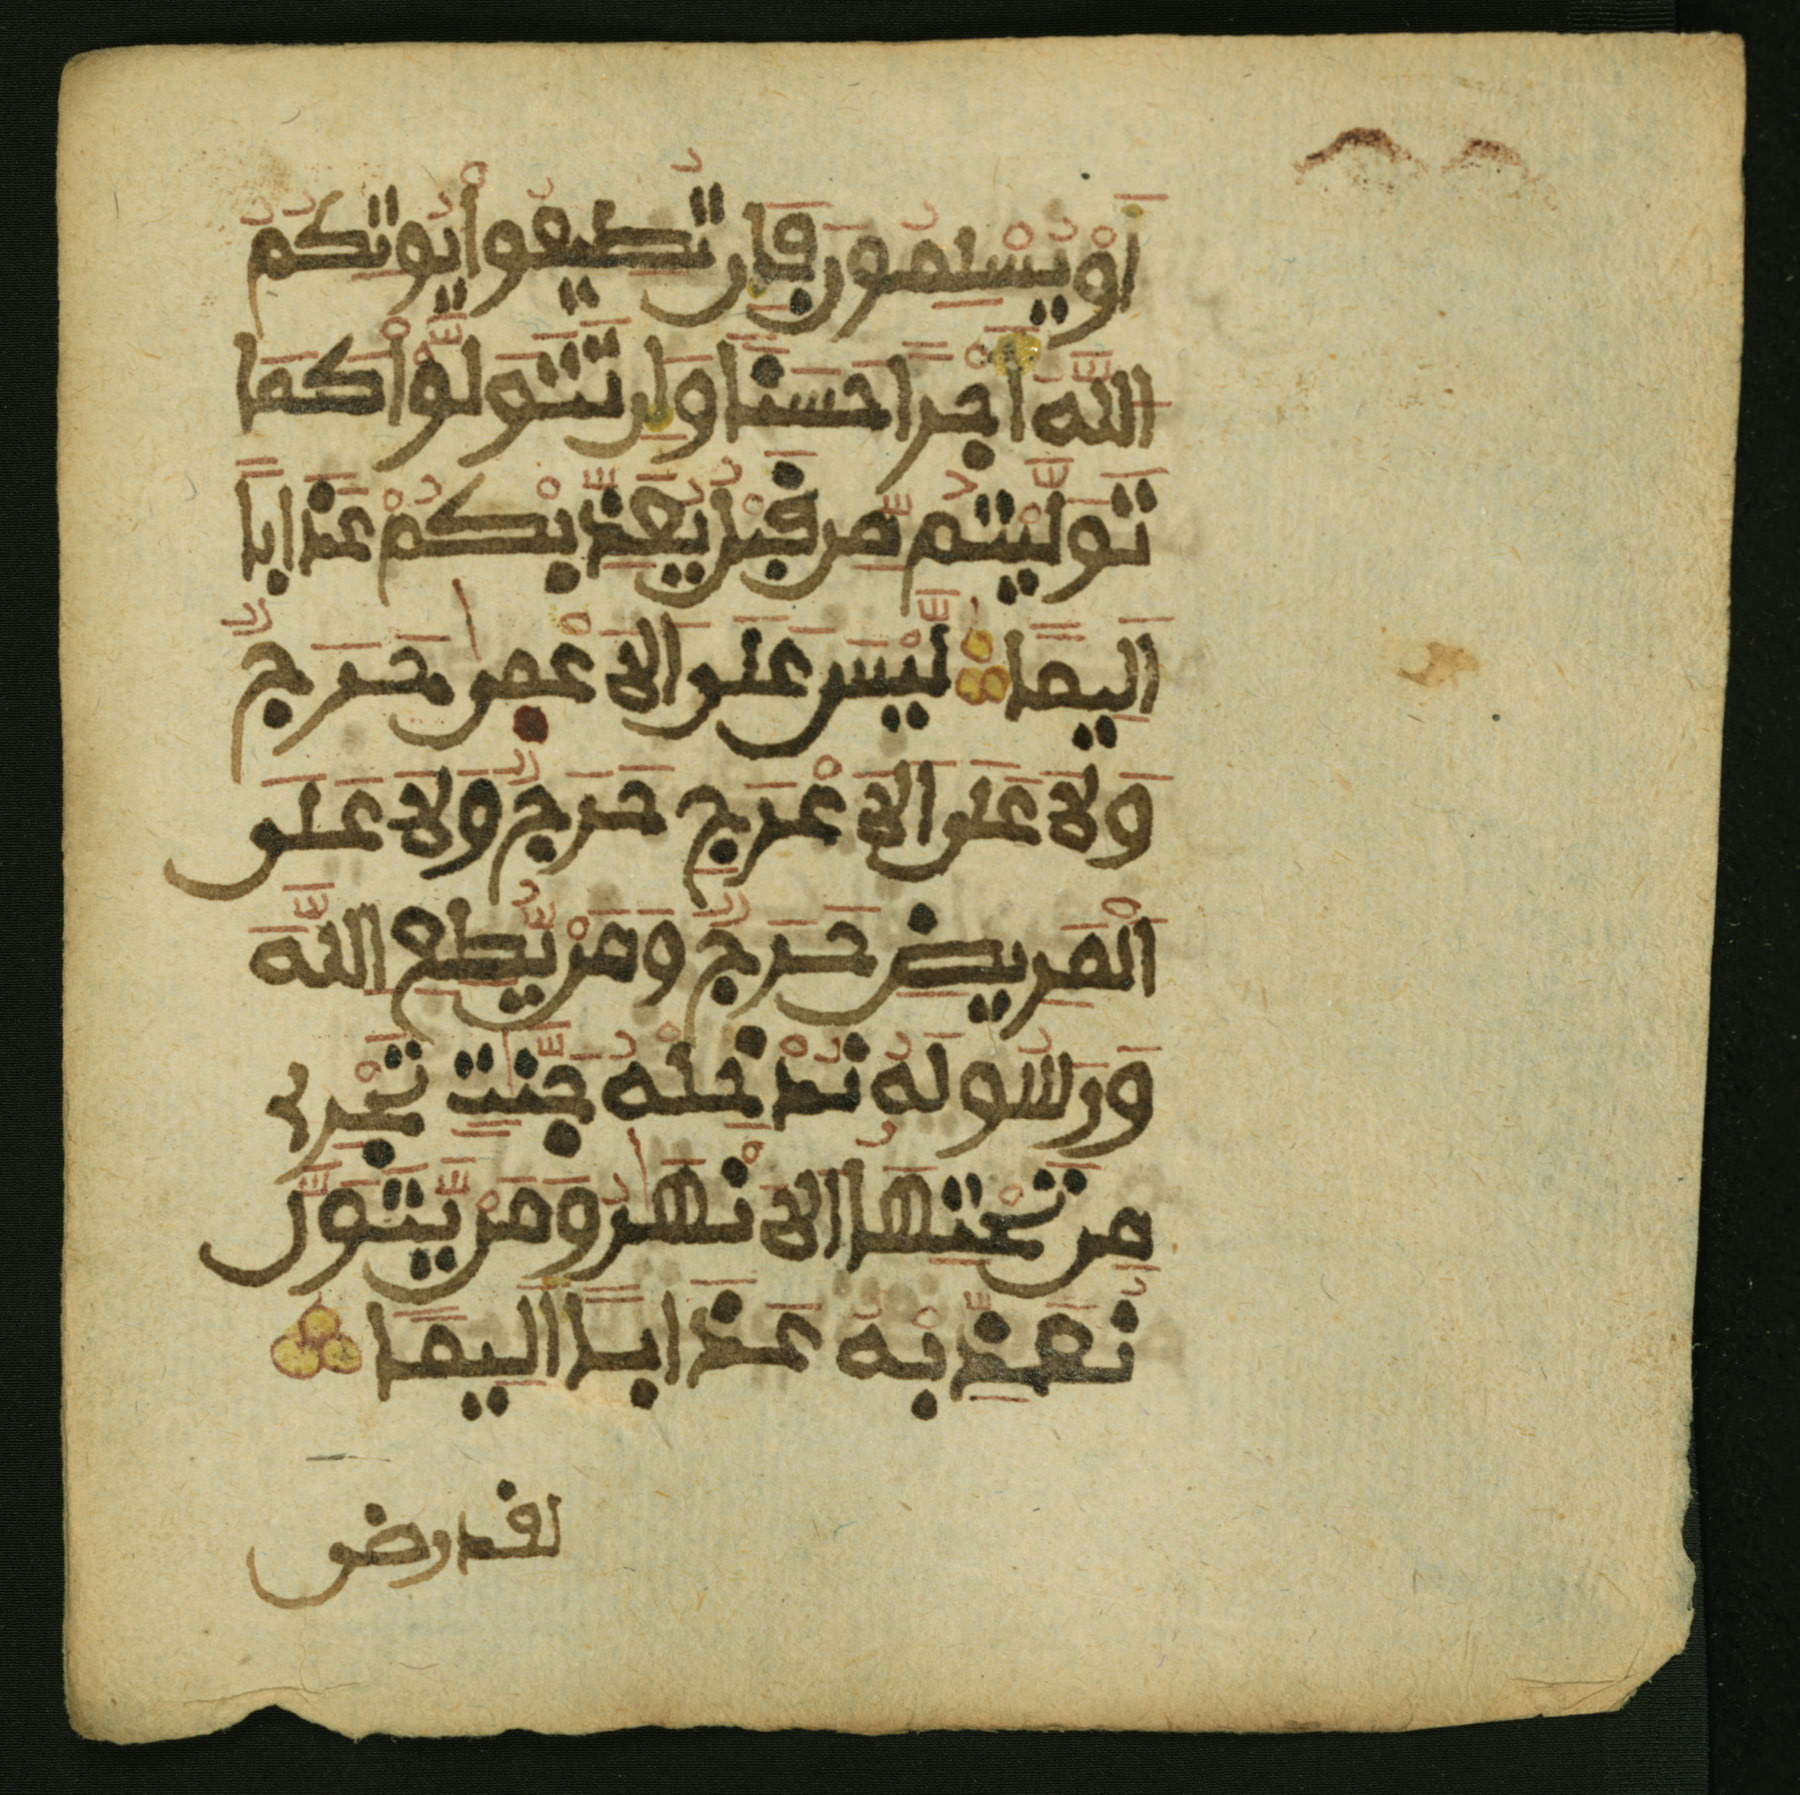 اَوْ يُسْلِمُونَ فَإِن تُطِيعُواْ يُوتِكُمُ
اللَّهُ أَجْراً حَسَناً وَإِن تَتَوَلَّوْاْ كَمَا
تَوَلَّيْتُم مِّن قَبْلُ يُعَذِّبْكُمْ عَذَاباً
اَلِيماً لَّيْسَ عَلَى الاَعْمىٰ حَرَجٌ
وَلاَ عَلَى الاَعْرَجِ حَرَجٌ وَلاَ عَلَى
الْمَرِيضِ حَرَجٌ وَمَنْ يُّطِعِ اللَّهَ
وَرَسُولَهُ نُدْخِلْهُ جَنَّٰتٍ تَجْرِي
مِن تَحْتِهَا الاَنْهَٰرُ وَمَنْ يَّتَوَلَّ
نُعَذِّبْهُ عَذَاباً اَلِيماً
لقد رضى